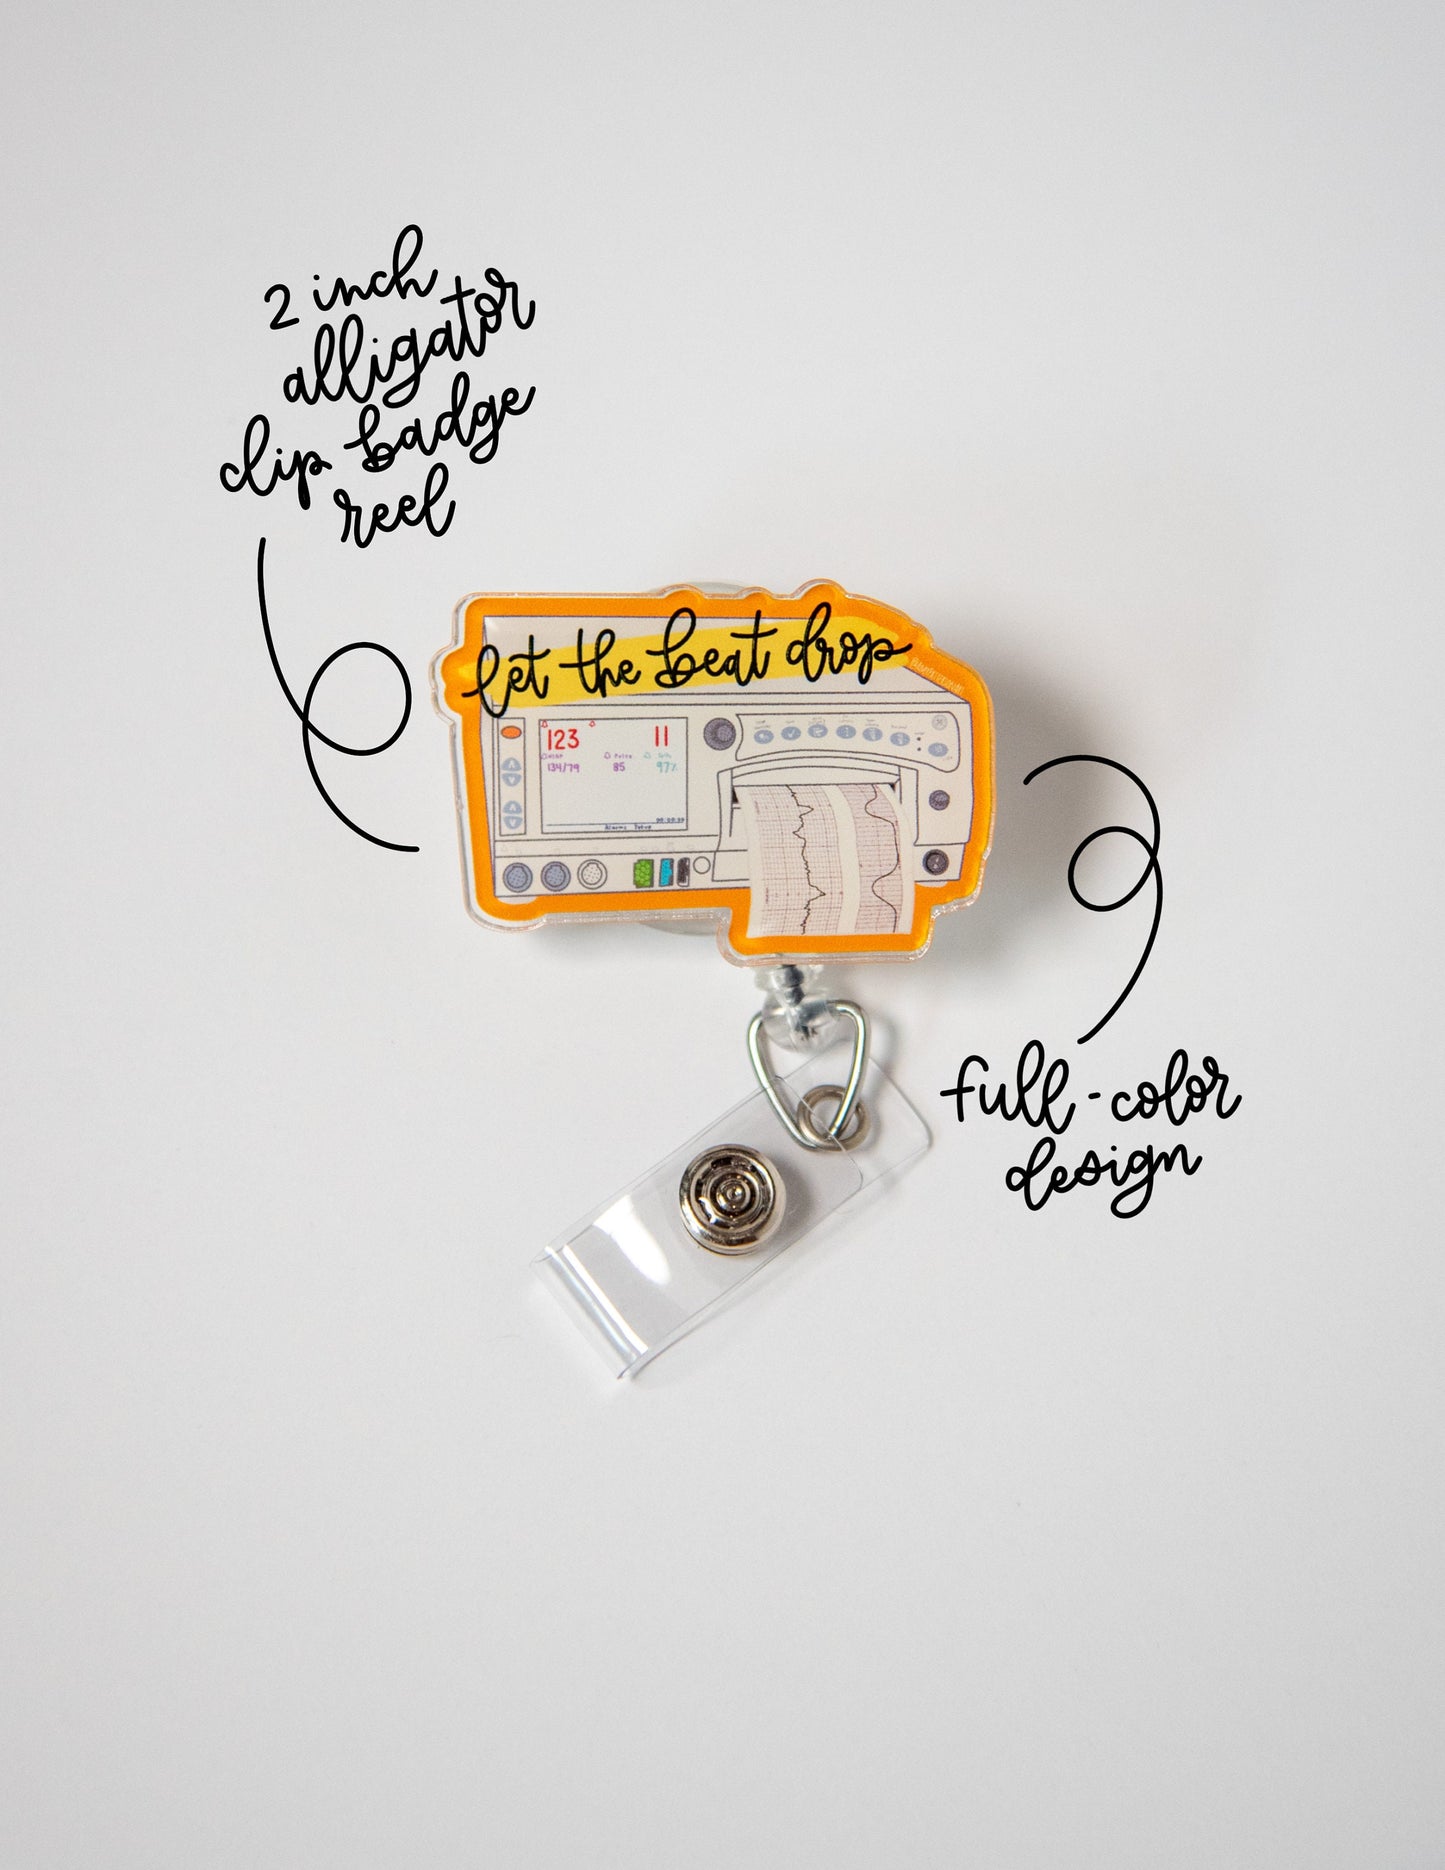 2 inch
alligator
clip badge
reel
let the beat drop
123
11
134/79
85
97%
00:00:00
full-color
design